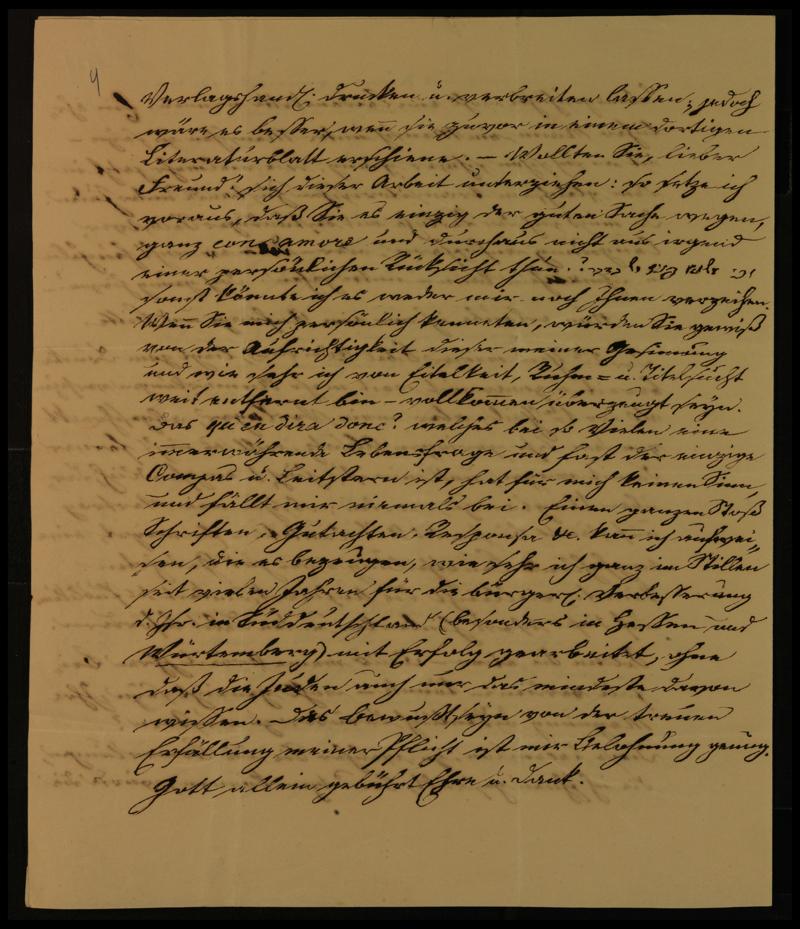 4
Verlagshandl. drucken u. verbreiten lassen; jedoch
wäre es besser, wenn sie zuvor in einem dortigen
Literaturblatt erschiene. — Wollten Sie, lieber
Freund! sich dieser Arbeit unterziehen: so setze ich
voraus, daß Sie es einzig der guten Sache wegen,
ganz con amore und durchaus nicht aus irgend
einer persönlichen Rücksicht thun.
sonst könnte ich es weder mir noch Ihnen verzeihen.
Wenn Sie mich persönlich kenneten, würden Sie gewiß
von der Aufrichtigkeit dieser meiner Gesinnung
und wie sehr ich von Eitelkeit, Ruhm= u. Titelsucht
weit entfernt bin – vollkommen überzeugt seyn.
Das qu'en dira donc? welches bei so Vielen eine
immerwährende Lebensfrage und fast der einzige
Compas u. Leitstern ist, hat für mich keinen Sinn,
und fällt mir niemals bei. Einen ganzen Stoß
Schriften, Gutachten, Responsa &c. kann ich aufwei=
sen, die es bezeugen, wie sehr ich ganz im Stillen
seit vielen Jahren für die bürgerl. Verbesserung
d. Isr. in Süddeutschland (besonders in Hessen und
Würtemberg) mit Erfolg gearbeitet, ohne
daß die Juden auch nur das mindeste davon
wissen. Das Bewußtseyn von der treuen
Erfüllung meiner Pflicht ist mir Belohnung genug.
Gott allein gebührt Ehre u. Dank.